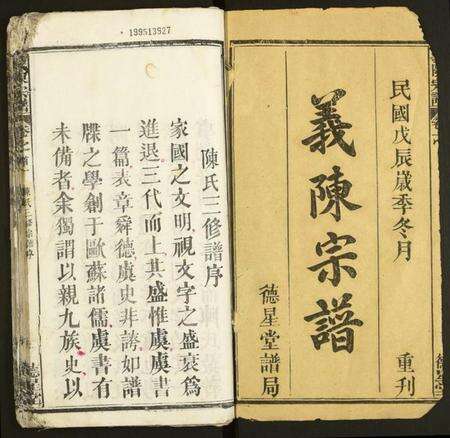 民國戊辰歲季冬月
重刊
義陳宗譜
德星堂譜局
199513927
陳氏三修譜序
家國之文明視文字之盛衰為
進退三代而上其盛惟虞虞書
一篇表章舜德虞史非誇如譜
牒之學創于歐蘇諸儒虞書有
未備者余獨謂以親九族史以